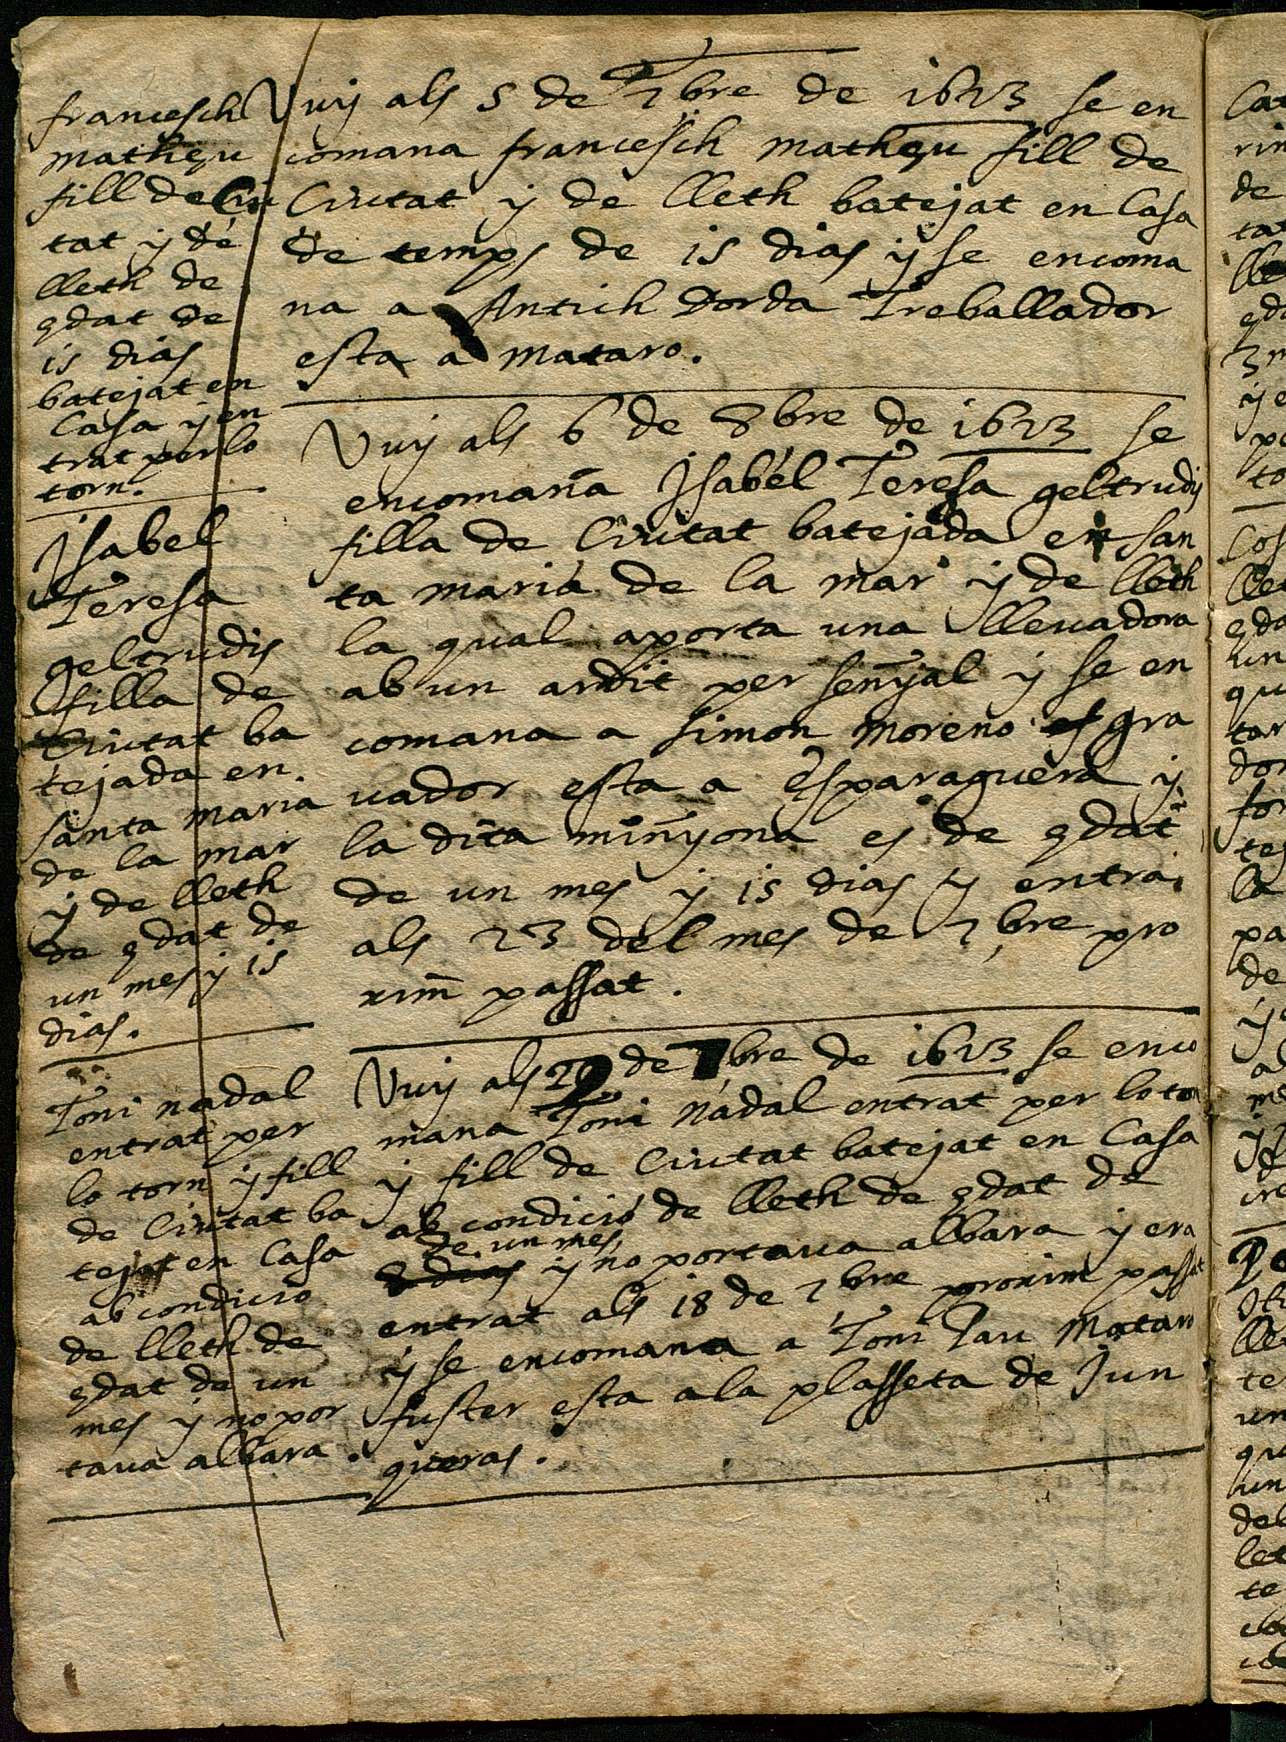 francesch
matheu
fill de Ciu
tat y de
lleth de
edat de
15 dias
batejat en
Casa y en
trat per lo
torn.
Vuy als 5 de 7bre de 1623 se en
comana francesch matheu fill de
Ciutat y de lleth batejat en Casa
de temps de 15 dias y se encoma
na a Antich Dorda Treballador
esta a mataro.
Jsabel
Teresa
geltrudis
filla de
Ciutat ba
tejada en
santa maria
de la mar
y de lleth
de edat de
un mes y 15
dias.
Vuy als 6 de 8bre de 1623 se
encomana Jsabel Teresa geltrudis
filla de Ciutat batejada en san
ta maria de la mar y de lleth
la qual aporta una lleuadora
ab un ardit per senyal y se en
comana a simon moreno gra
uador esta a Esparaguera y
la dita minyona es de edat
de un mes y 15 dias y entra
als 23 del mes de 7bre pro
xim passat.
Toni nadal
entrat per
lo torn y fill
de Ciutat ba
tejat en Casa
ab condicio
de lleth de
edat de un
mes y no por
taua albara.
Vuy als 29 de 7bre de 1623 se enco
mana Toni nadal entrat per lo torn
y fill de Ciutat batejat en Casa
ab condicio de lleth de edat de
de un mes
y no portaua albara y era
entrat als 18 de 7bre proxim passat
y se encomana a Toni Pau Mataro
fuster esta a la plasseta de Jun
queras.